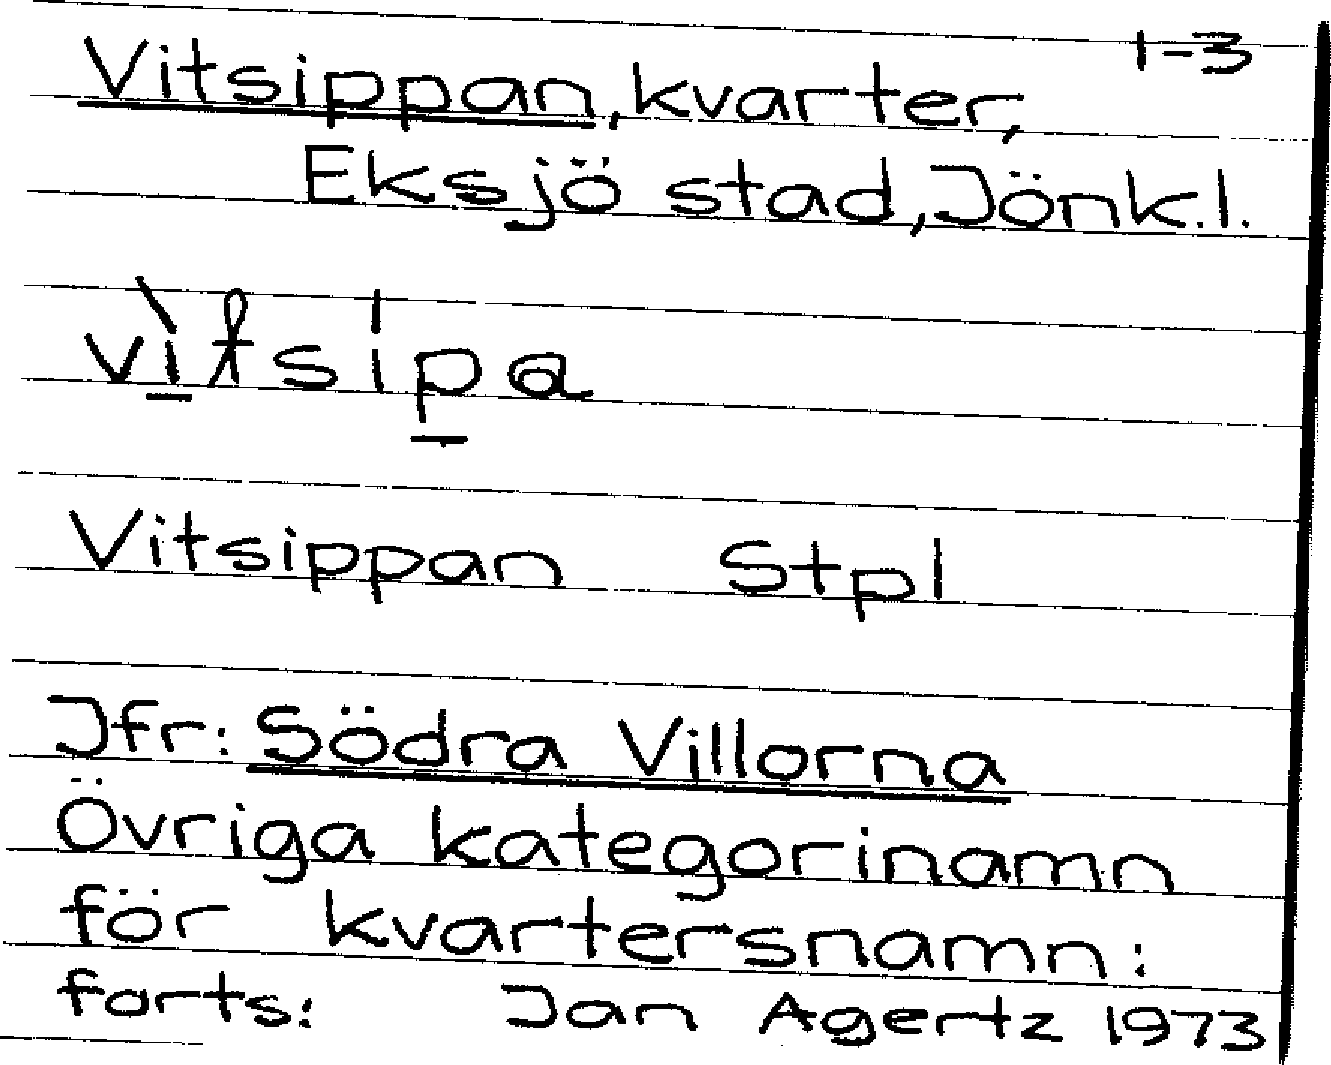 1-3
Vitsippan, kvarter,
Eksjö stad, Jönk.l.
Vitsippan Stpl
Jfr: Södra Villorna
Övriga kategorinamn
för kvartersnamn:
forts: Jan Agertz 1973